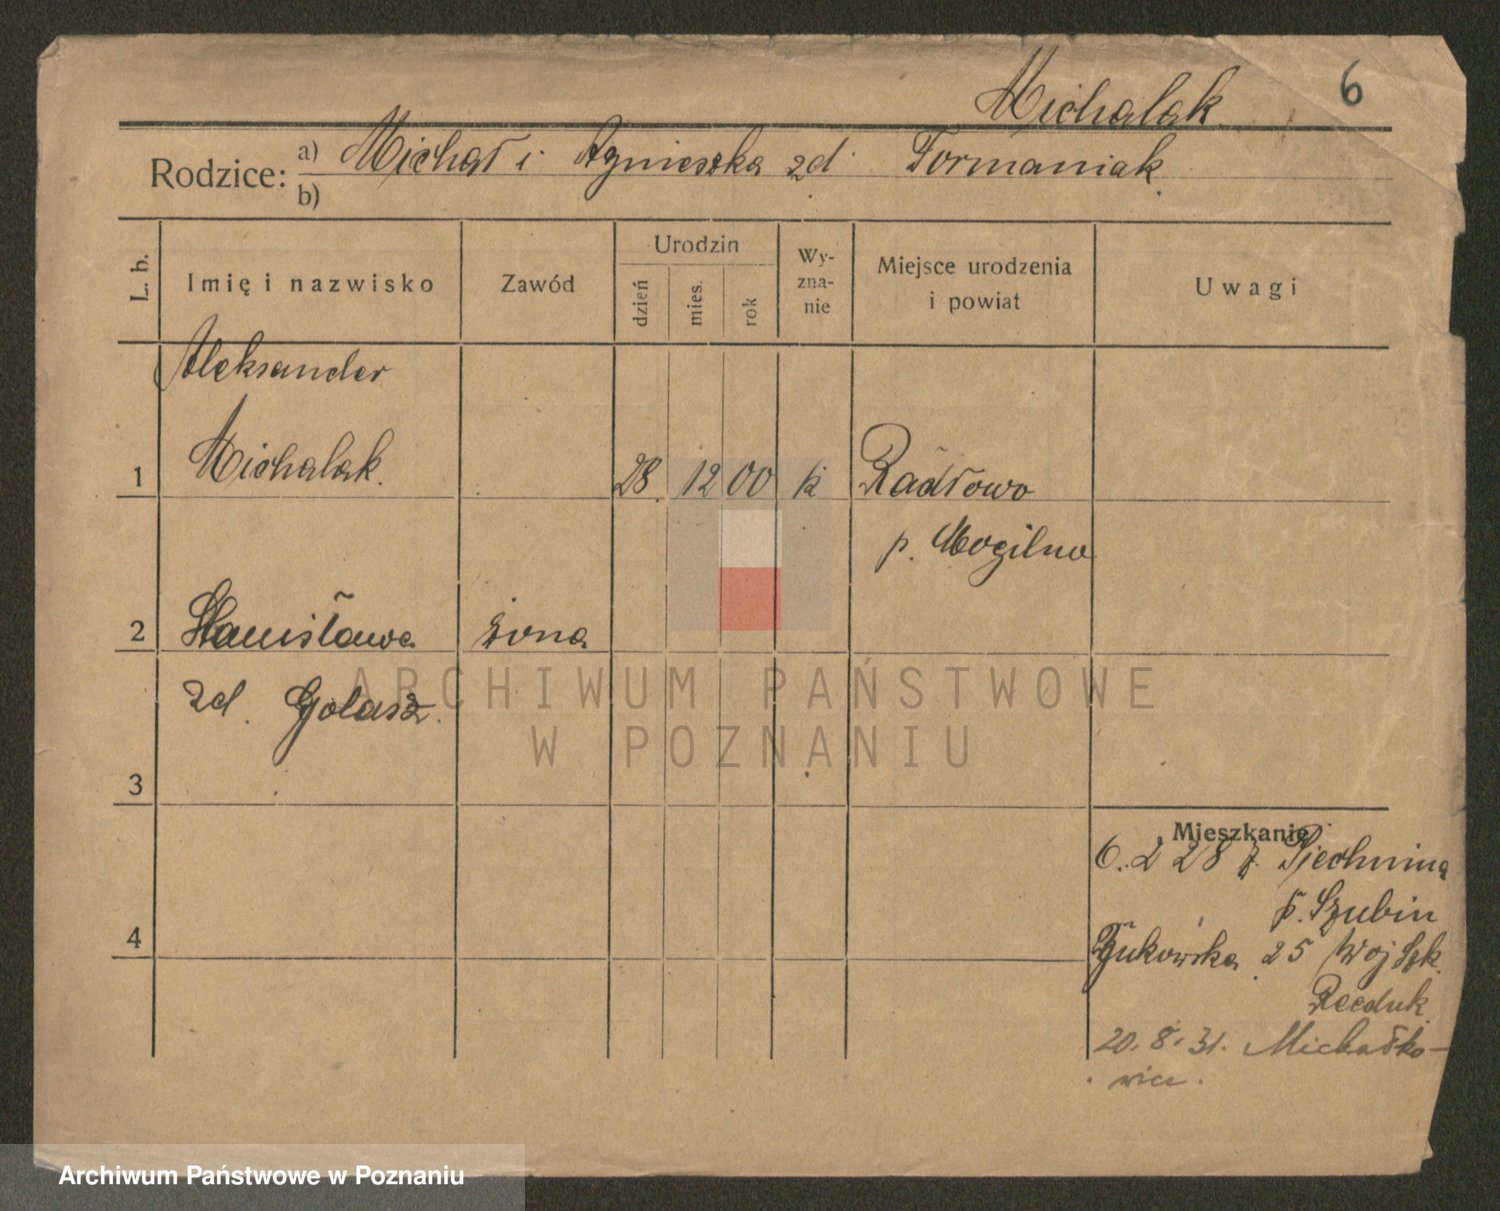 Michalak
6
Rodzice: a) Michał i Agnieszka zd Formaniak
b)
L. b.
Imię i nazwisko
Zawód
Urodzin
dzień
mies.
rok
Wy-
zna-
nie
Miejsce urodzenia
i powiat
Uwagi
Aleksander
1 Michalak. 28. 12 00 k Radłowo
p. Mogilno
2 Stanisława żona
zd. Golasz.
3
Mieszkanie
6. 2 28 z Piechnina
p. Szubin
4
Żukowska 25 Woj
20. 8. 31. Michałko-
wice.
ARCHIWUM PAŃSTWOWE
W POZNANIU
Archiwum Państwowe w Poznaniu